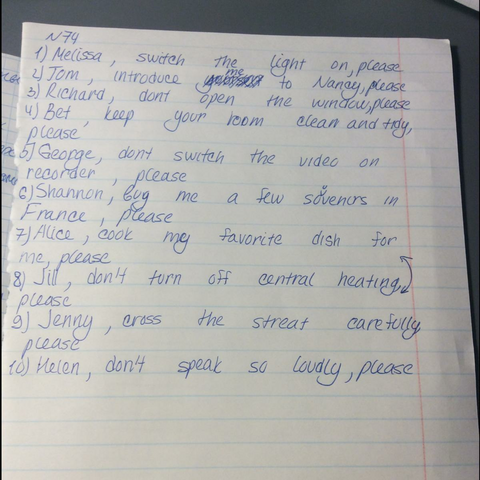 N74
1) Melissa, switch the light on, please
2) Tom, introduce me to Nancy, please
3) Richard, dont open the window, please
4) Bet, keep your room clean and tidy,
please
5) George, dont switch the video on
recorder, please
6) Shannon, bug me a few sovenirs in
France, please
7) Alice, cook my favorite dish for
me, please
8) Jill, don't turn off central heating,
please
9) Jenny, cross the streat carefully
please
10) Helen, don't speak so loudly, please